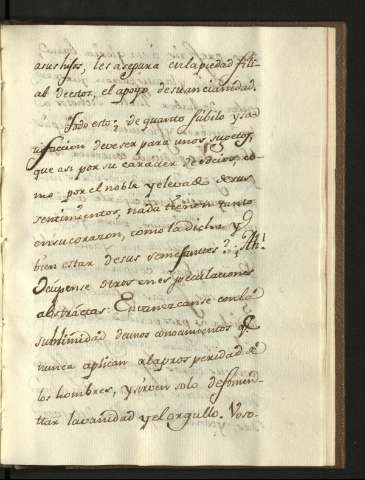 asus hijos, les asegura en la piedad fili-
al de estos, el apoyo de su ancianidad.
Todo esto? de quanto jubilo y sa-
tisfacion deve ser para unos sugetos,
que asi por su caracter de socios, co-
mo por el noble y elevado de sus
sentimientos, nada tienen tanto
en su corazon, como la dicha y
bien estar de sus semejantes? ¡Ah!
Ocupense otros en especulaciones
abstractas: Envanezcanse con la
sublimidad de unos conocimientos q.e
nunca aplican ala prosperidad de
los hombres, y sirven solo de fomen-
ttar la vanidad y el orgullo. Voso-